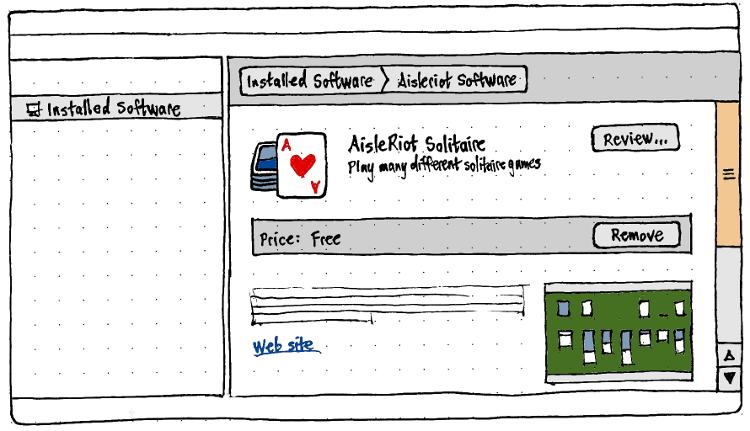 Installed Software > Aisleriot Software
Installed Software
AisleRiot Solitaire
Play many different solitaire games
Review...
A
A
Price: Free
Remove
Web site